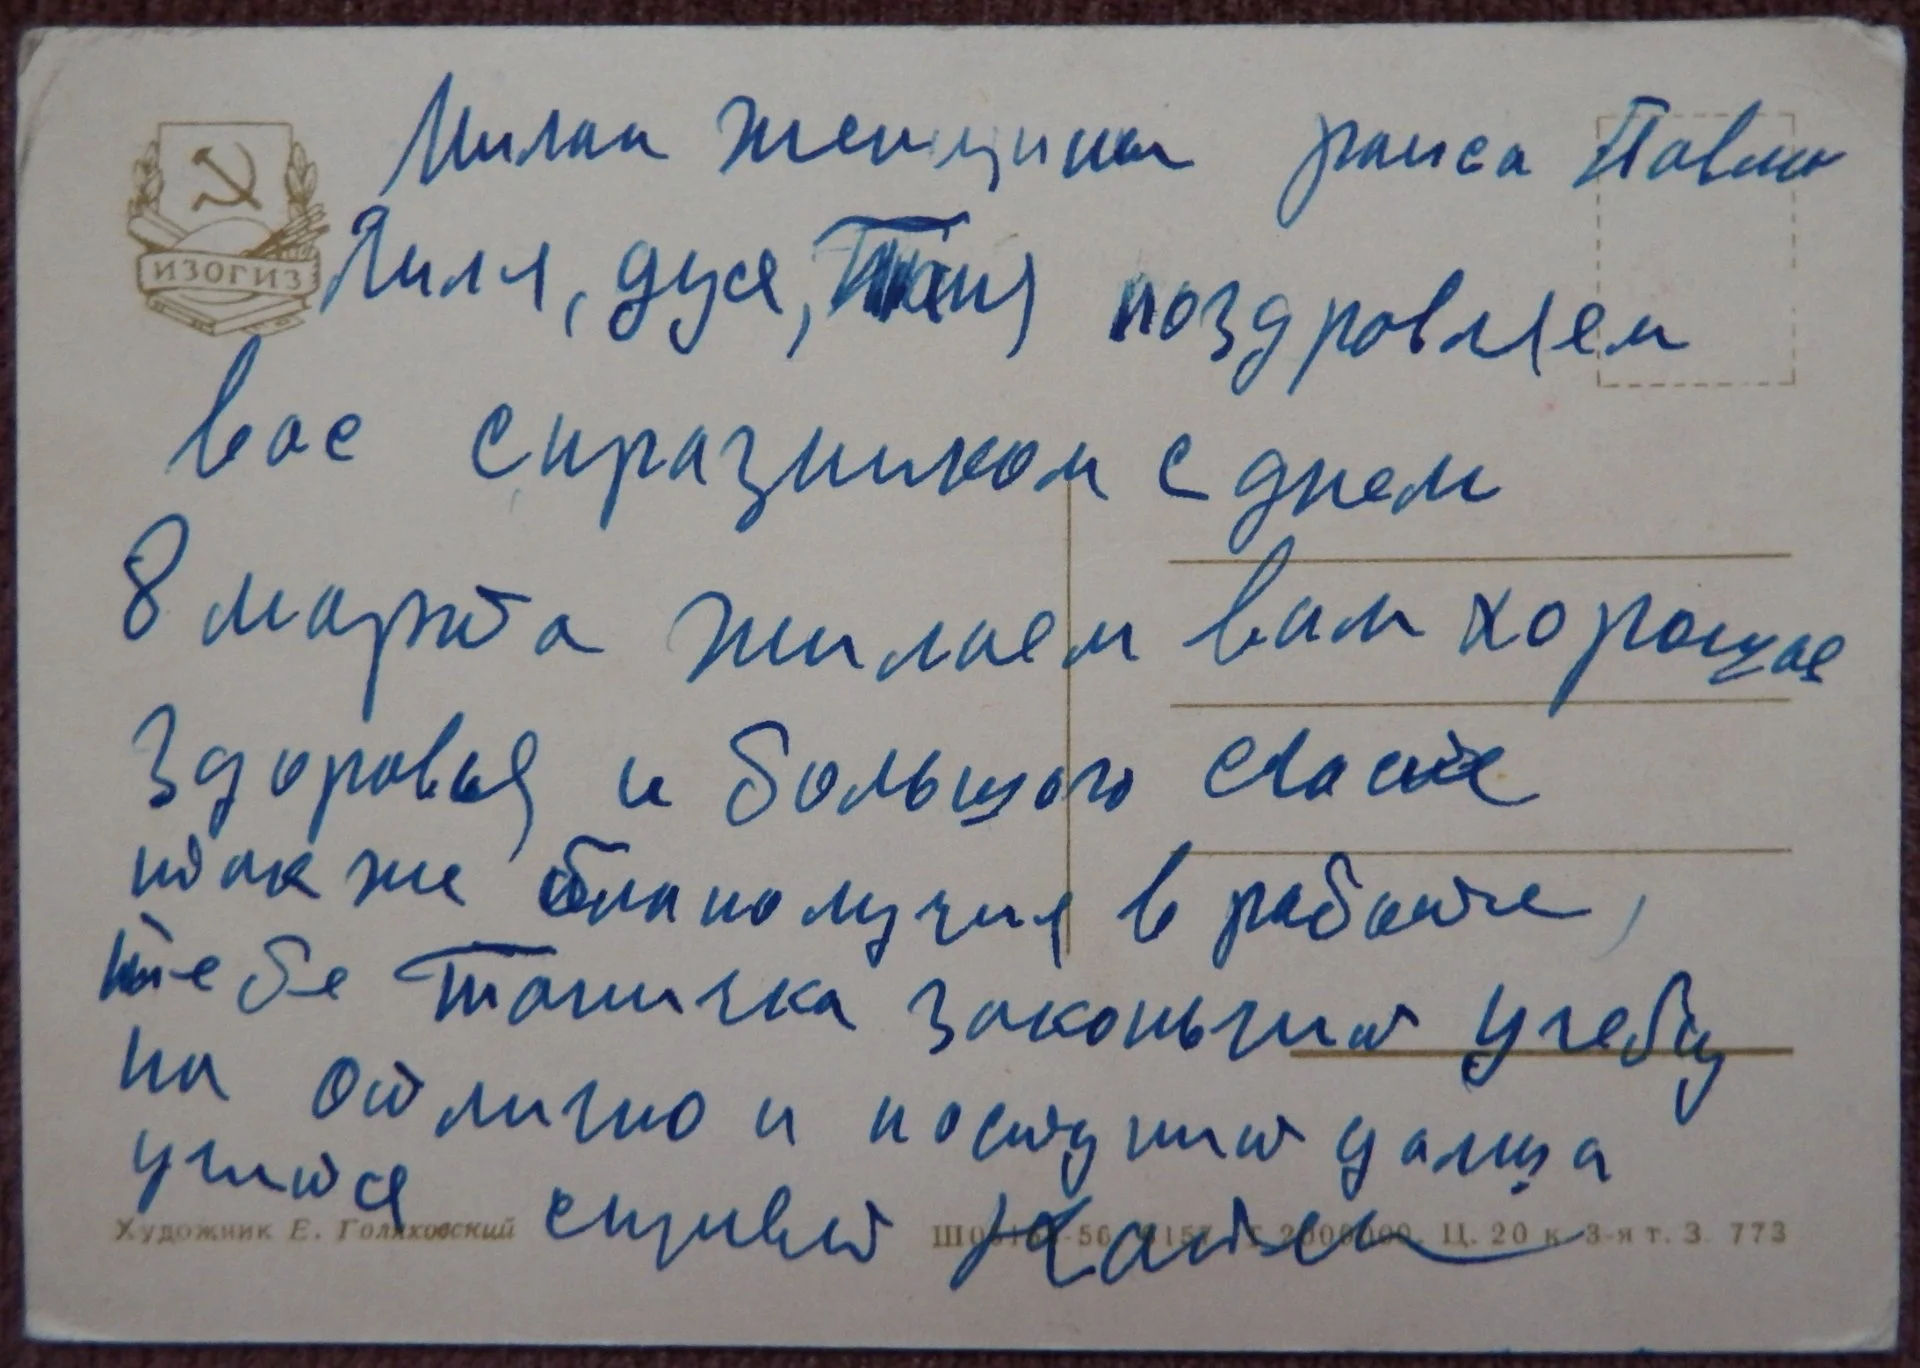 Милая женщина раиса Павли
Лиля, дуся, Таня поздровляем
вас спразником с днем
8 марта жилаем вам хорошае
Здоровья и большого счастье
также благополучия в работе,
тебе Таничка законьчит учебу
на отлично и поступит далша
учится
ИЗОГИЗ
Художник Е. Голяховский
Ц. 20 к. 3-я т. З. 773